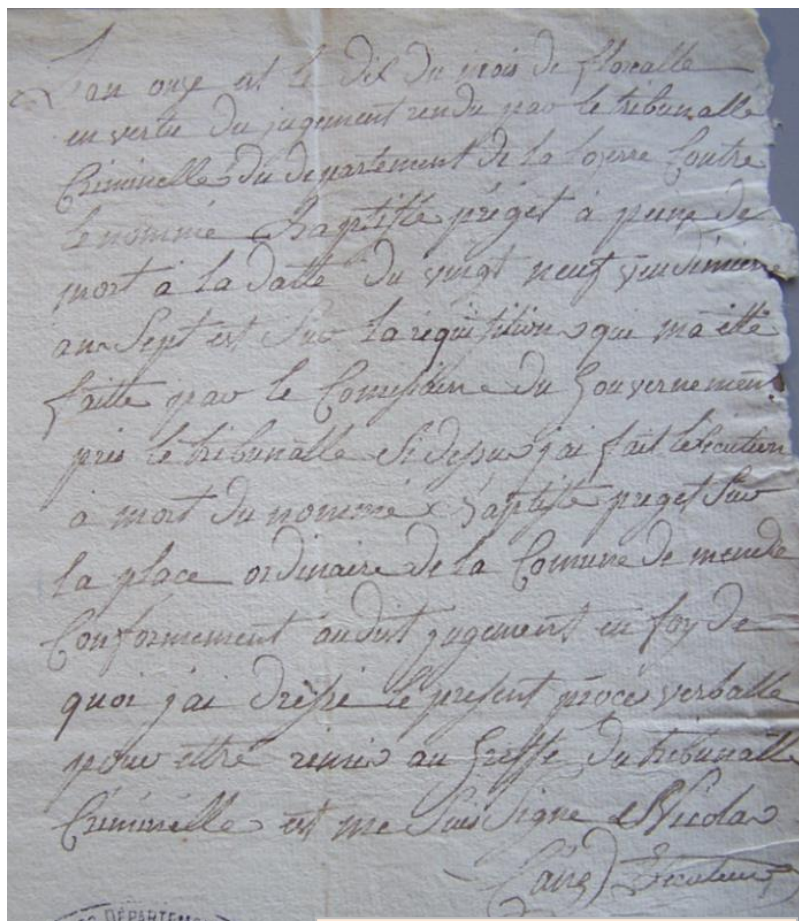 L'an onze et le dix du mois de florealle
en vertu du jugement rendu par le tribunalle
Criminelle du departement de la lozerre Contre
le nommé Baptiste préget à peine de
mort à la datte du vingt neuf vendémiere
an Sept et Sur la requisition qui ma etté
faitte par le Comissaire du Gouvernement
pres le tribunalle Sidessus jai fait lexecution
a mort du nommé Baptiste preget Sur
la place ordinaire de la Comune de mende
Conformement audit jugement en foy de
quoi jai dréssé le present procé verballe
pour ettre remis au Greffe du tribunalle
Criminélle et me Suis Signe Nicolas
Executeur
DÉPARTEM